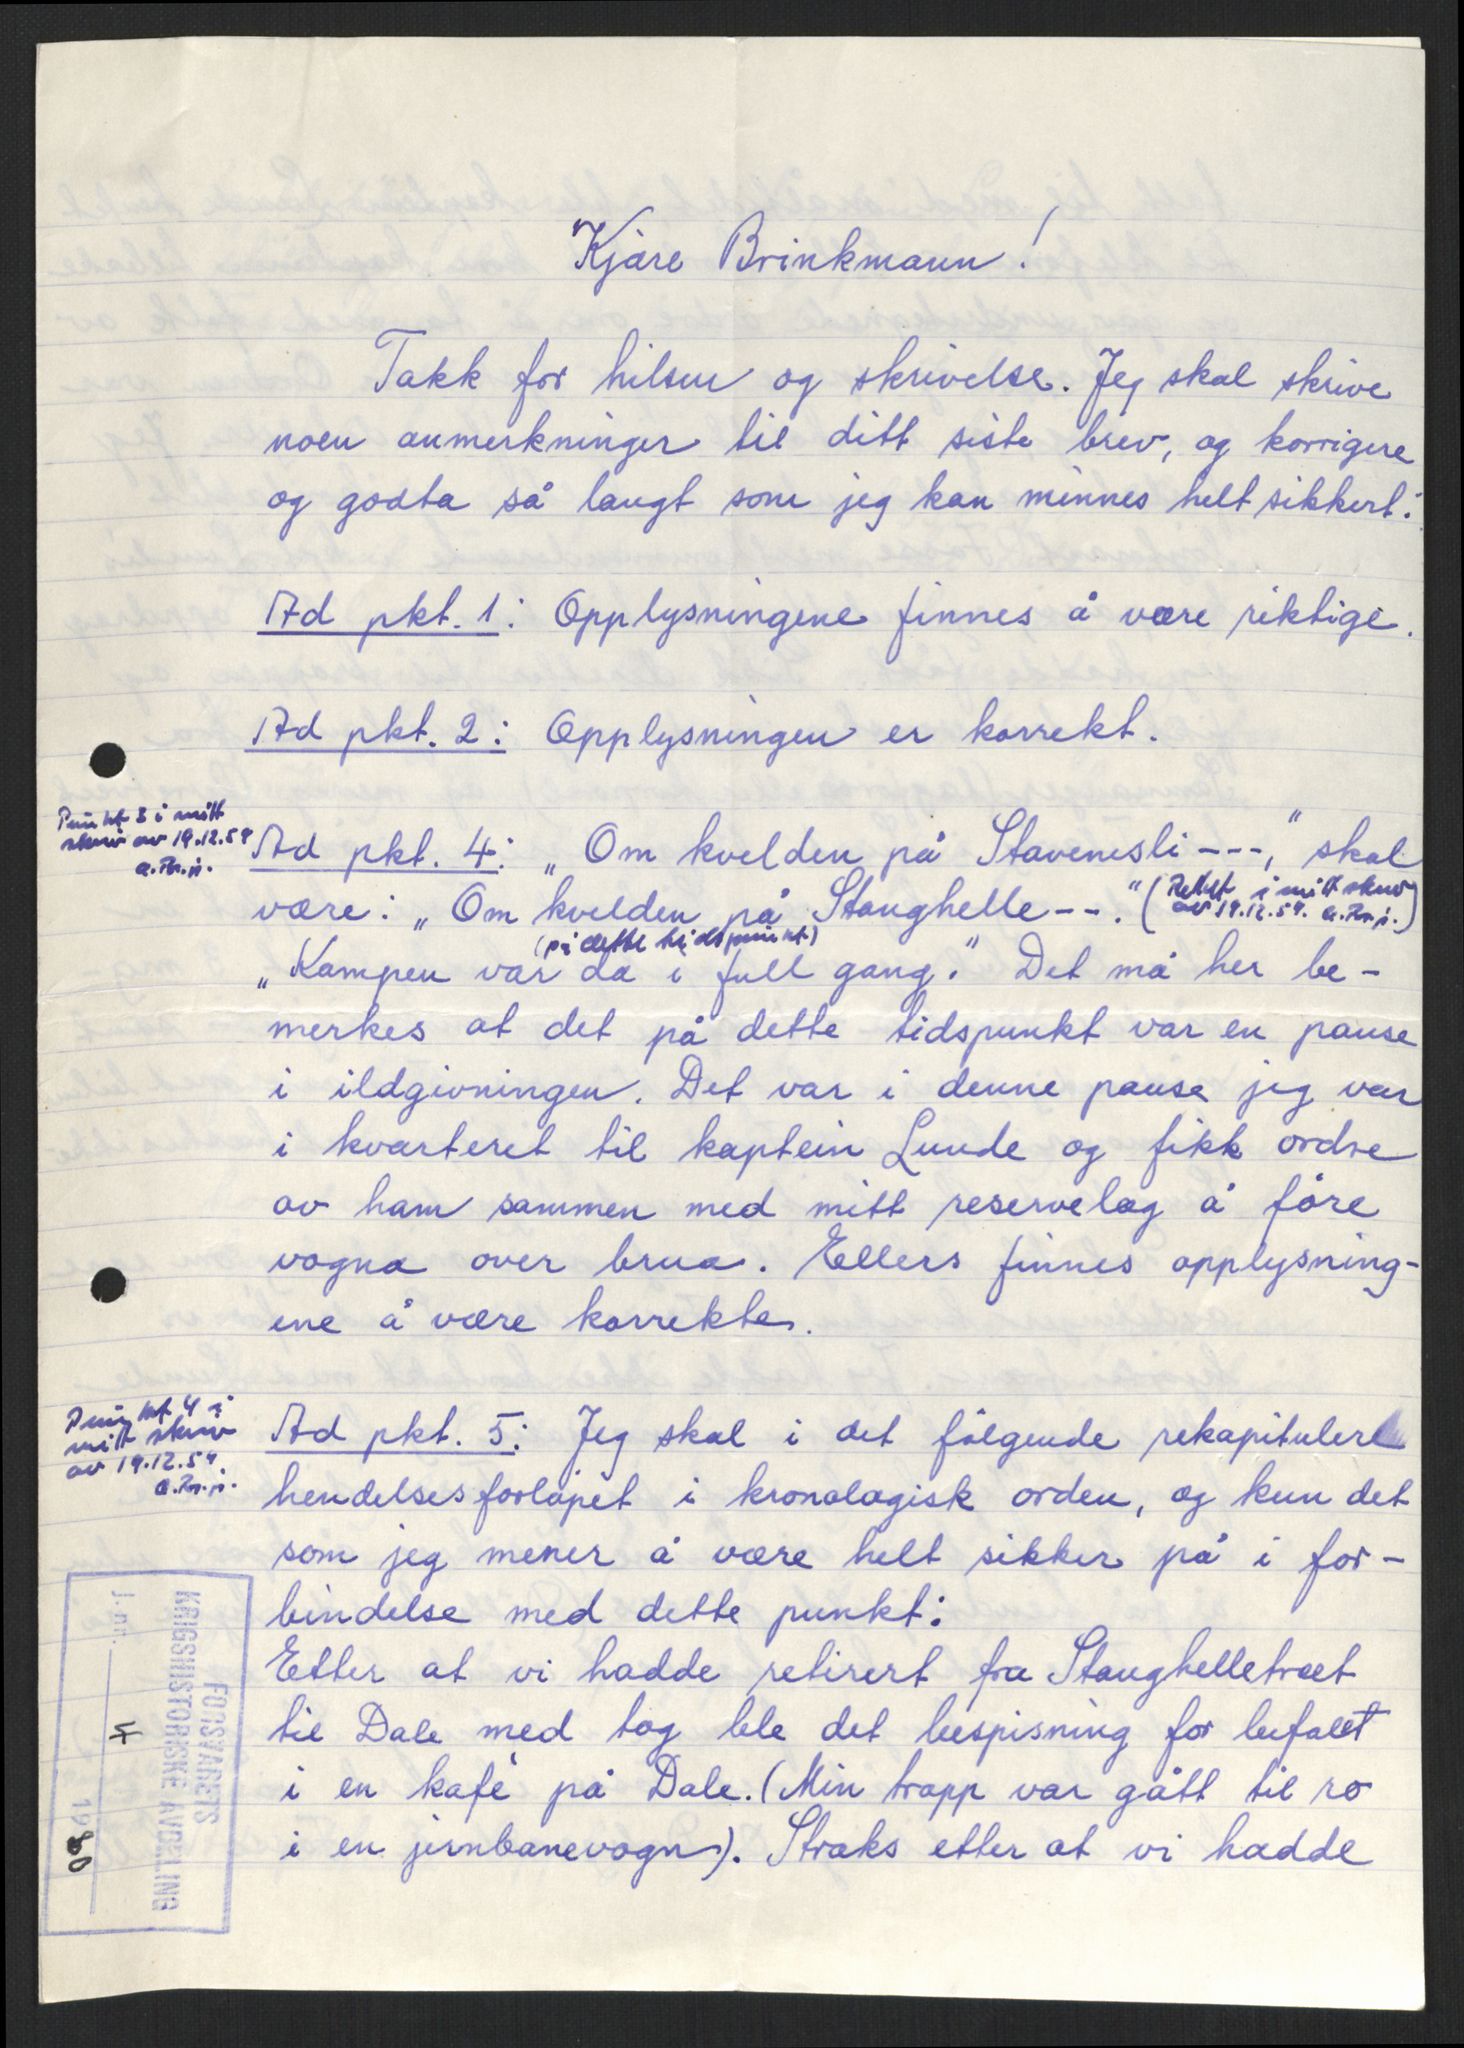 Kjære Brinkmann!
Takk for hilsen og skrivelse. Jeg skal skrive
noen anmerkninger til ditt siste brev, og korrigere
og godta så langt som jeg kan minnes helt sikkert:
Ad pkt. 1: Opplysningene finnes å være riktige.
Ad pkt. 2: Opplysningen er korrekt.
Punkt 3 i mitt
skriv av 19.12.59
Ad pkt. 4: „Om kvelden på Stavenesli ---," skal
være: „Om kvelden på Stanghelle --." (Rettet i mitt skriv
av 19.12.59.
(på dette tidspunkt)
„Kampen var da i full gang." Det må her be-
merkes at det på dette tidspunkt var en pause
i ildgivningen. Det var i denne pause jeg var
i kvarteret til kaptein Lunde og fikk ordre
av ham sammen med mitt reservelag å føre
vogna over brua. Ellers finnes opplysning-
ene å være korrekte.
Punkt 4 i
mitt skriv
av 19.12.59
Ad pkt. 5: Jeg skal i det følgende rekapitulere
hendelsesforløpet i kronologisk orden, og kun det
som jeg mener å være helt sikker på i for-
bindelse med dette punkt:
Etter at vi hadde retirert fra Stanghelletræet
til Dale med tog ble det bespisning for befalet
i en kafé på Dale. (Min tropp var gått til ro
i en jernbanevogn). Straks etter at vi hadde
FORSVARETS
KRIGSHISTORISKE AVDELING
J. nr.
4 1960